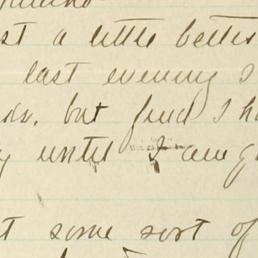 st a little better
last evening I
but find I ha
y until I am g
t some sort of